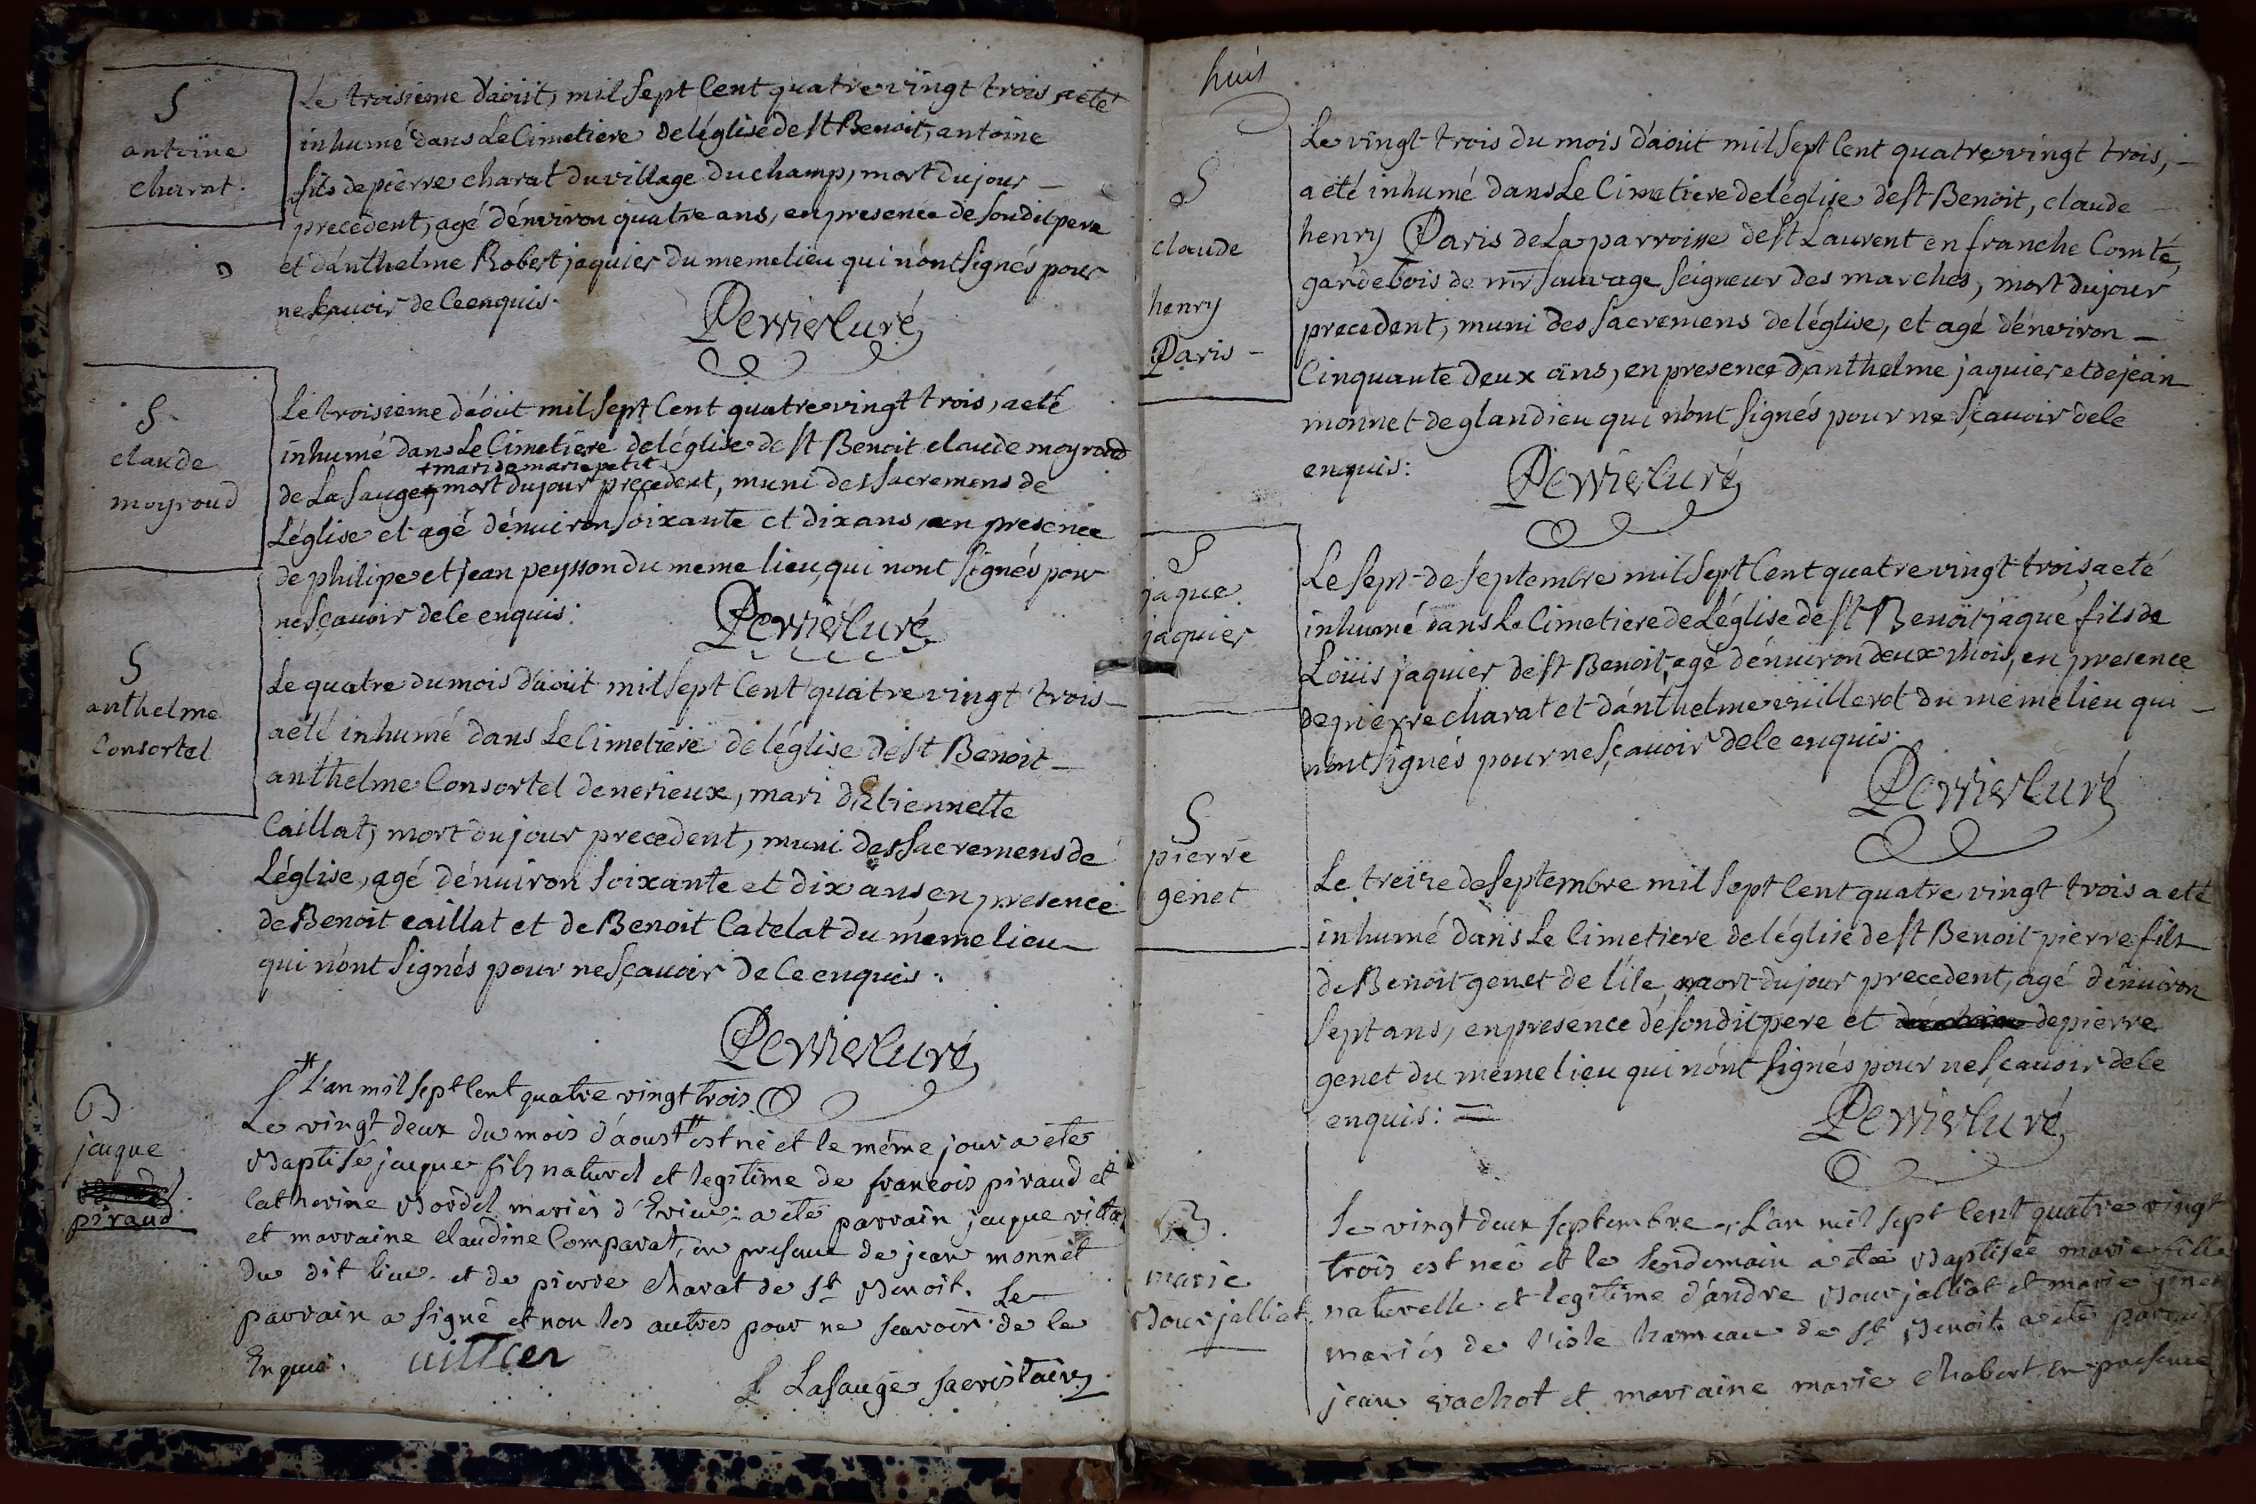 S
antoine
charat.
Le troisieme d'aoüt, mil sept Cent quatre vingt trois, a eté
inhumé dans Le Cimetiere de léglise de st Benoit, antoine
fils de pierre charat du village du champ, mort du jour
precedent, agé d'énviron quatre ans, en presence de son dit pere
et d'anthelme Robert jaquier du meme lieu qui n'ont signés pour
ne sçavoir de Ce enquis.
Perrier Curé
S
claude
moyroud
Le troisieme d'aóut mil sept Cent quatre vingt trois, a eté
inhumé dans Le Cimetiere de léglise de st Benoit claude moyroud
+ mari de marie petit
de La Sauge + mort du jour precedent, muni des sacremens de
L'église et agé d'énviron soixante et dix ans, en presence
de philipe et jean peysson du meme lieu, qui n'ont signés pour
ne sçavoir de Ce enquis:
Perrier Curé
S
anthelme
Consortel
Le quatre du mois d'aoüt mil sept Cent quatre vingt trois
a eté inhumé dans Le Cimetiere de léglise de st Benoit
anthelme Consortel de nerieux, mari d'Etiennette
Caillat, mort du jour precedent, muni des sacremens de
L'église, agé d'énviron soixante et dix ans, en presence
de Benoit caillat et de Benoit Catelat du méme lieu
qui n'ont signés pour ne sçavoir de Ce enquis.
Perrier Curé
# L'an mil sept Cent quatre vingt trois
B
jaque
piraud
Le vingt deux du mois d'aoust # est né et le méme jour a eté
Baptisé jaque fils naturel et legitime de francois piraud et
Catherine Bordel mariés d'Evieu; a eté parrain jaque vittoz
et marraine claudine Comparat, en presence de jean monnet
du dit lieu et de pierre charat de St Benoit. Le
parrain a signé et non les autres pour ne scavoir de ce
Enquis.
L Lasauge sacristain
huit
S
claude
henry
Paris
Le vingt trois du mois d'aoüt mil sept Cent quatre vingt trois,
a eté inhumé dans Le Cimetiere de léglise de st Benoit, claude
henry Paris de La parroisse de st Laurent en franche Comté,
garde bois de mr sauvage seigneur des marches, mort du jour
precedent, muni des sacremens de léglise, et agé d'énviron
Cinquante deux ans, en presence d'anthelme jaquier et de jean
monnet de glandieu qui n'ont signés pour ne sçavoir de Ce
enquis:
Perrier Curé
S
jaque
jaquier
Le sept de septembre mil sept Cent quatre vingt trois, a eté
inhumé dans Le Cimetiere de L'église de st Benoit jaque fils de
Loüis jaquier de st Benoit, agé d'énviron deux mois, en presence
de pierre charat et d'anthelme vuillerot du méme lieu qui
n'ont signés pour ne sçavoir de Ce enquis.
Perrier Curé
S
pierre
genet
Le treize de septembre mil sept Cent quatre vingt trois a eté
inhumé dans Le Cimetiere de léglise de st Benoit pierre fils
de Benoit genet de l'ile, mort du jour precedent, agé d'énviron
sept ans, en presence de son dit pere et de pierre
genet du méme lieu qui n'ont signés pour ne sçavoir de Ce
enquis: =
Perrier Curé
B.
marie
Bourjalliat.
Le vingt deux septembre, L'an mil sept Cent quatre vingt
trois est neé et le lendemain a eté Baptiseé marie fille
naturelle et legitime d'andre Bourjalliat et marie genet
mariés de l'isle hameau de St Benoit. a eté parrain
jean vachot et marraine marie chabert en presence